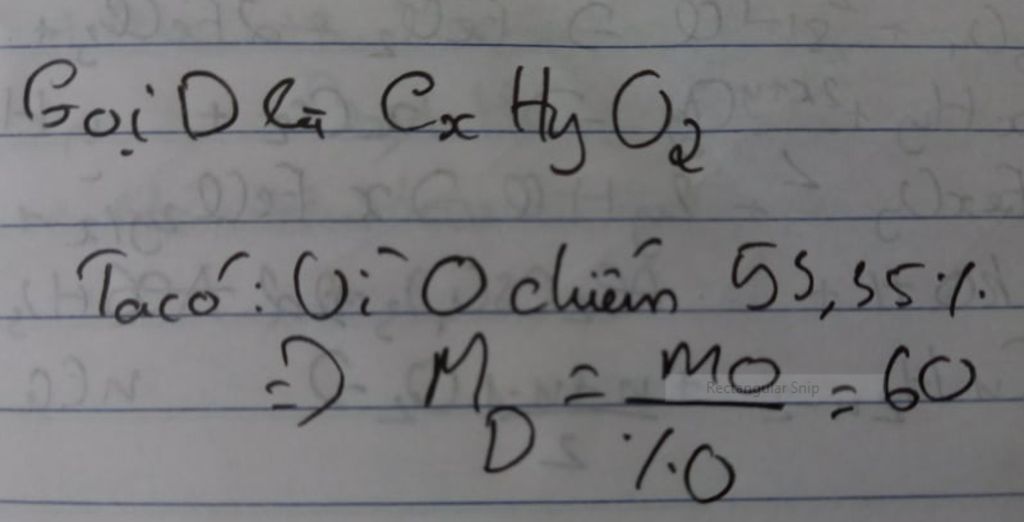 Gọi D là CxHyO2
Ta có: Vì O chiếm 53,35%
=> MD = mO / %O = 60
Rectangular Snip